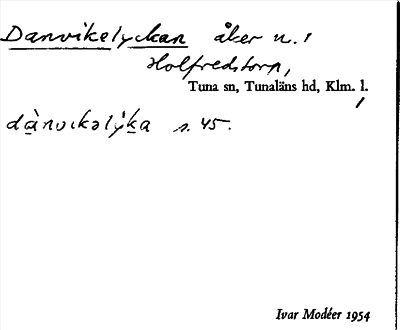 Danvikelyckan åker n. 1
Holfredstorp,
Tuna sn, Tunaläns hd, Klm. l.
dànvikəlỳka s. 45.
Ivar Modéer 1954